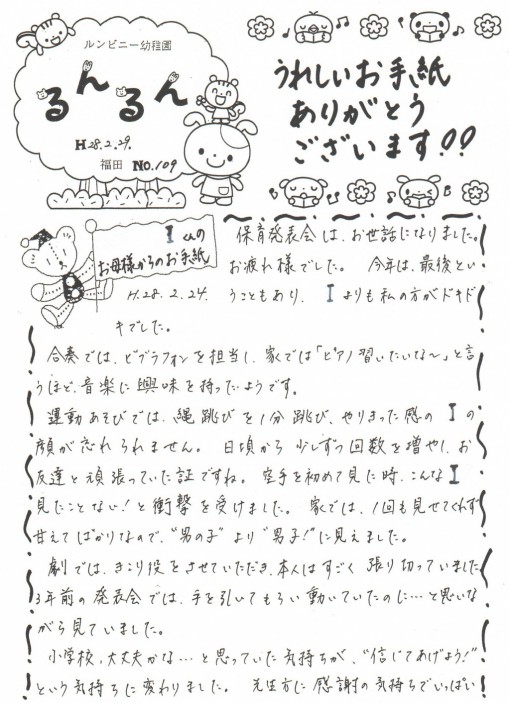 ルンビニー幼稚園
るんるん
H28.2.29.
福田 No.109
うれしいお手紙
ありがとう
ございます!!
Iくんの
お母様からのお手紙
H.28.2.24.
保育発表会は、お世話になりました。
お疲れ様でした。 今年は、最後とい
うこともあり、Iよりも私の方がドキド
キでした。
合奏では、ビブラフォンを担当し、家では「ピアノ習いたいな〜」と言
うほど、音楽に興味を持ったようです。
運動あそびでは、縄跳びを1分跳び、やりきった感のIの
顔が忘れられません。 日頃から少しずつ回数を増やし、お
友達と頑張っていた証ですね。 空手を初めて見た時、こんなI
見たことない!と衝撃を受けました。 家では、1回も見せてくれず
甘えてばかりなので、“男の子”より“男子!”に見えました。
劇では、きこり役をさせていただき、本人はすごく張り切っていました
3年前の発表会では、手を引いてもらい動いていたのに…と思いな
がら見ていました。
小学校、大丈夫かな…と思っていた気持ちが、“信じてあげよう!”
という気持ちに変わりました。 先生方に感謝の気持ちでいっぱい